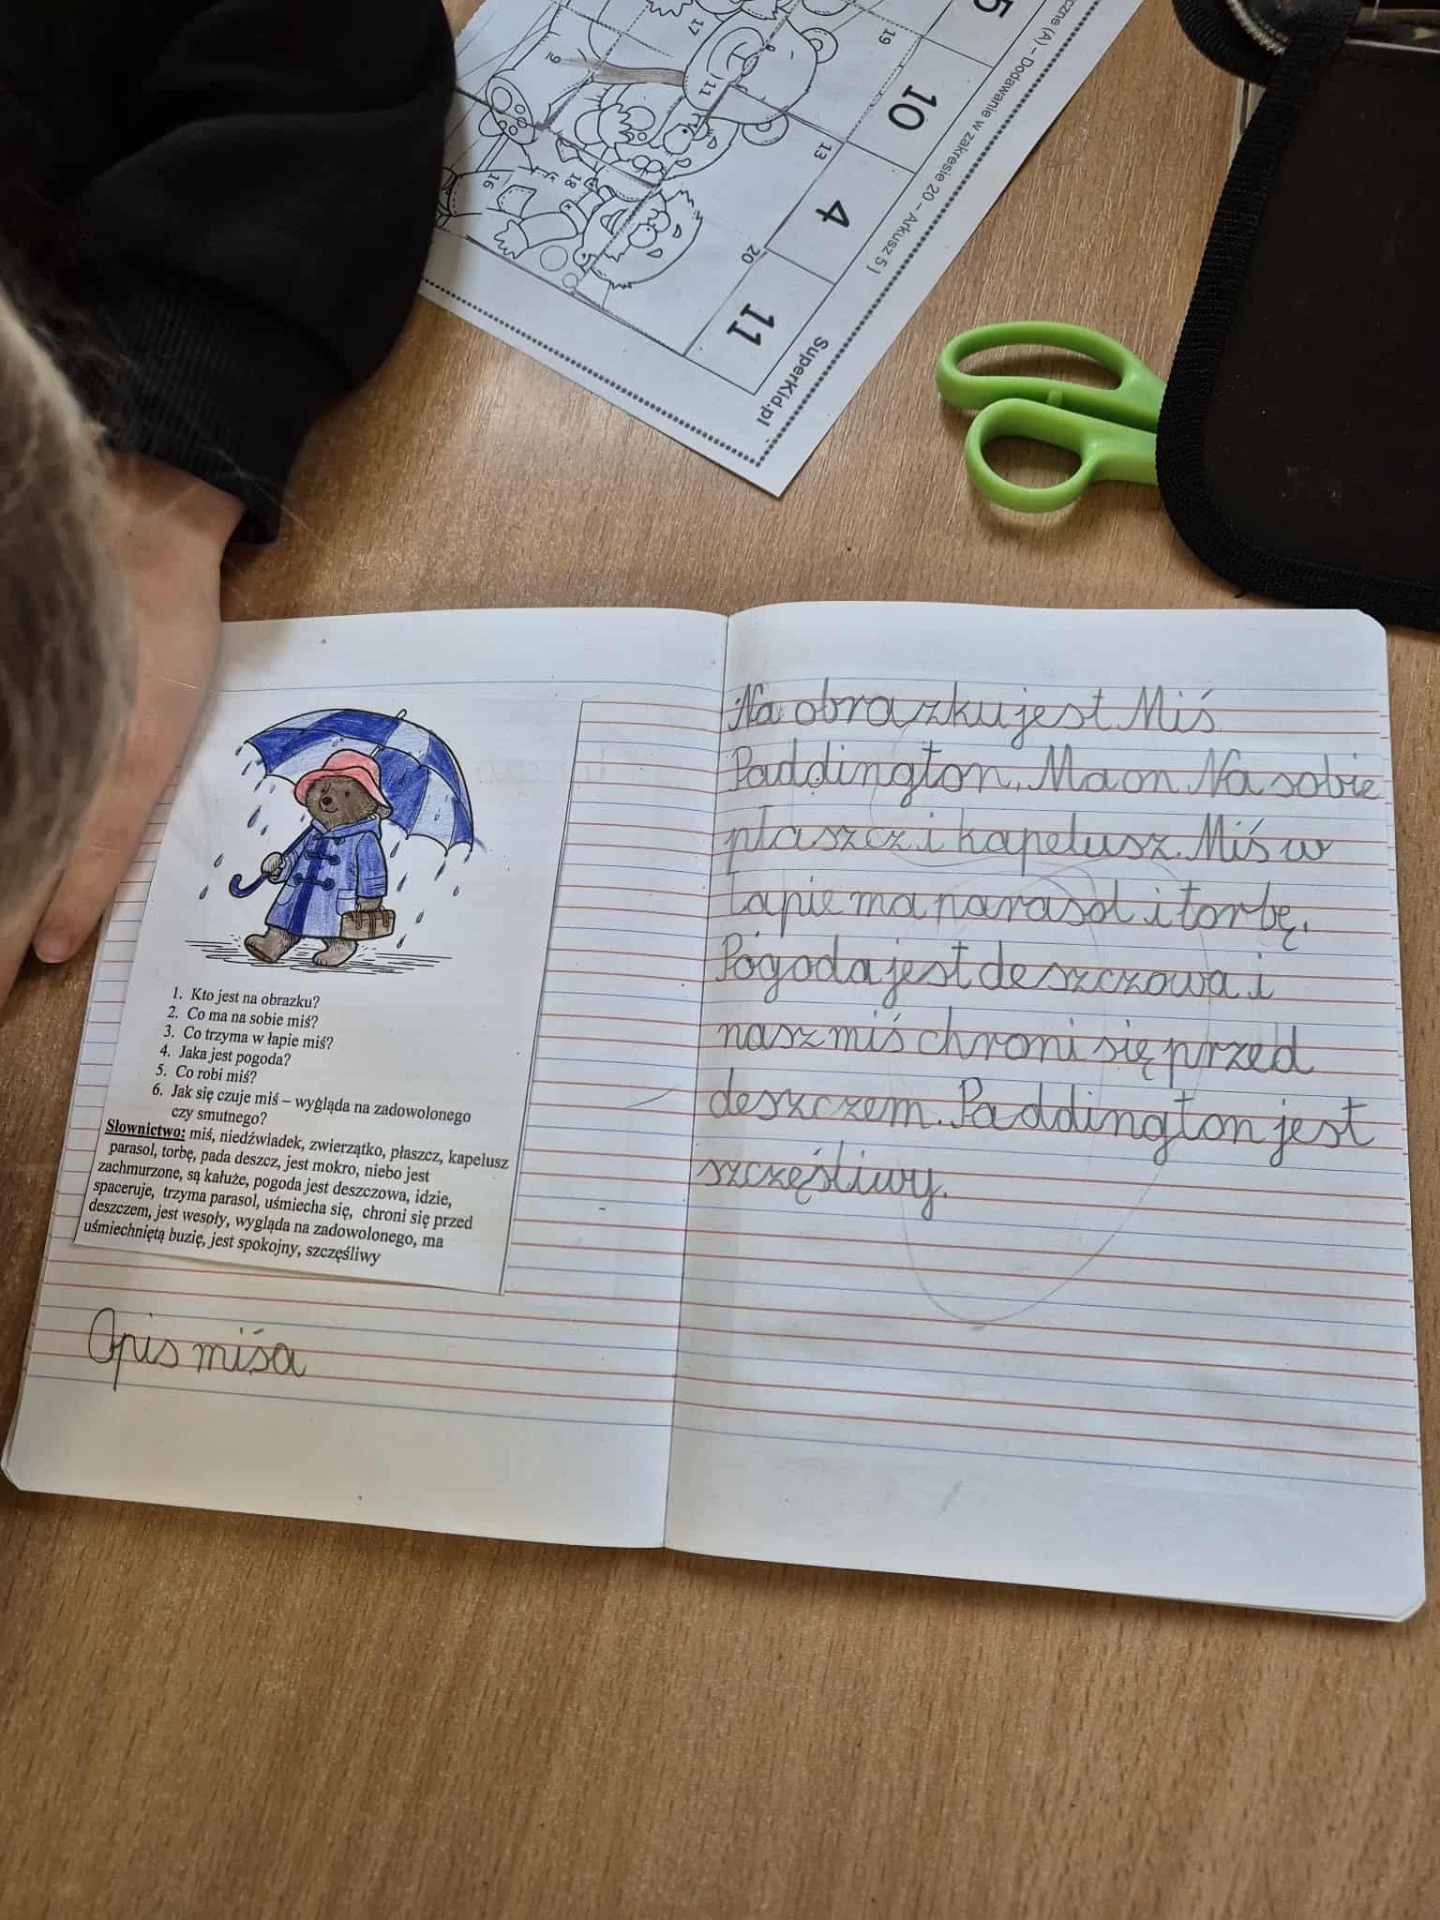 5
10
4
11
19
17
13
11
9
18
16
20
czne (A) – Dodawanie w zakresie 20 – Arkusz 5 j
SuperKid.pl
1. Kto jest na obrazku?
2. Co ma na sobie miś?
3. Co trzyma w łapie miś?
4. Jaka jest pogoda?
5. Co robi miś?
6. Jak się czuje miś – wygląda na zadowolonego
czy smutnego?
Słownictwo: miś, niedźwiadek, zwierzątko, płaszcz, kapelusz
parasol, torbę, pada deszcz, jest mokro, niebo jest
zachmurzone, są kałuże, pogoda jest deszczowa, idzie,
spaceruje, trzyma parasol, uśmiecha się, chroni się przed
deszczem, jest wesoły, wygląda na zadowolonego, ma
uśmiechniętą buzię, jest spokojny, szczęśliwy
Opis miśa
Na obrazku jest Miś
Paddington. Ma on Na sobie
płaszcz i kapelusz. Miś w
Łapie ma parasol i torbę.
Pogoda jest deszczowa i
nasz miś chroni się przed
deszczem. Paddington jest
szczęśliwy.